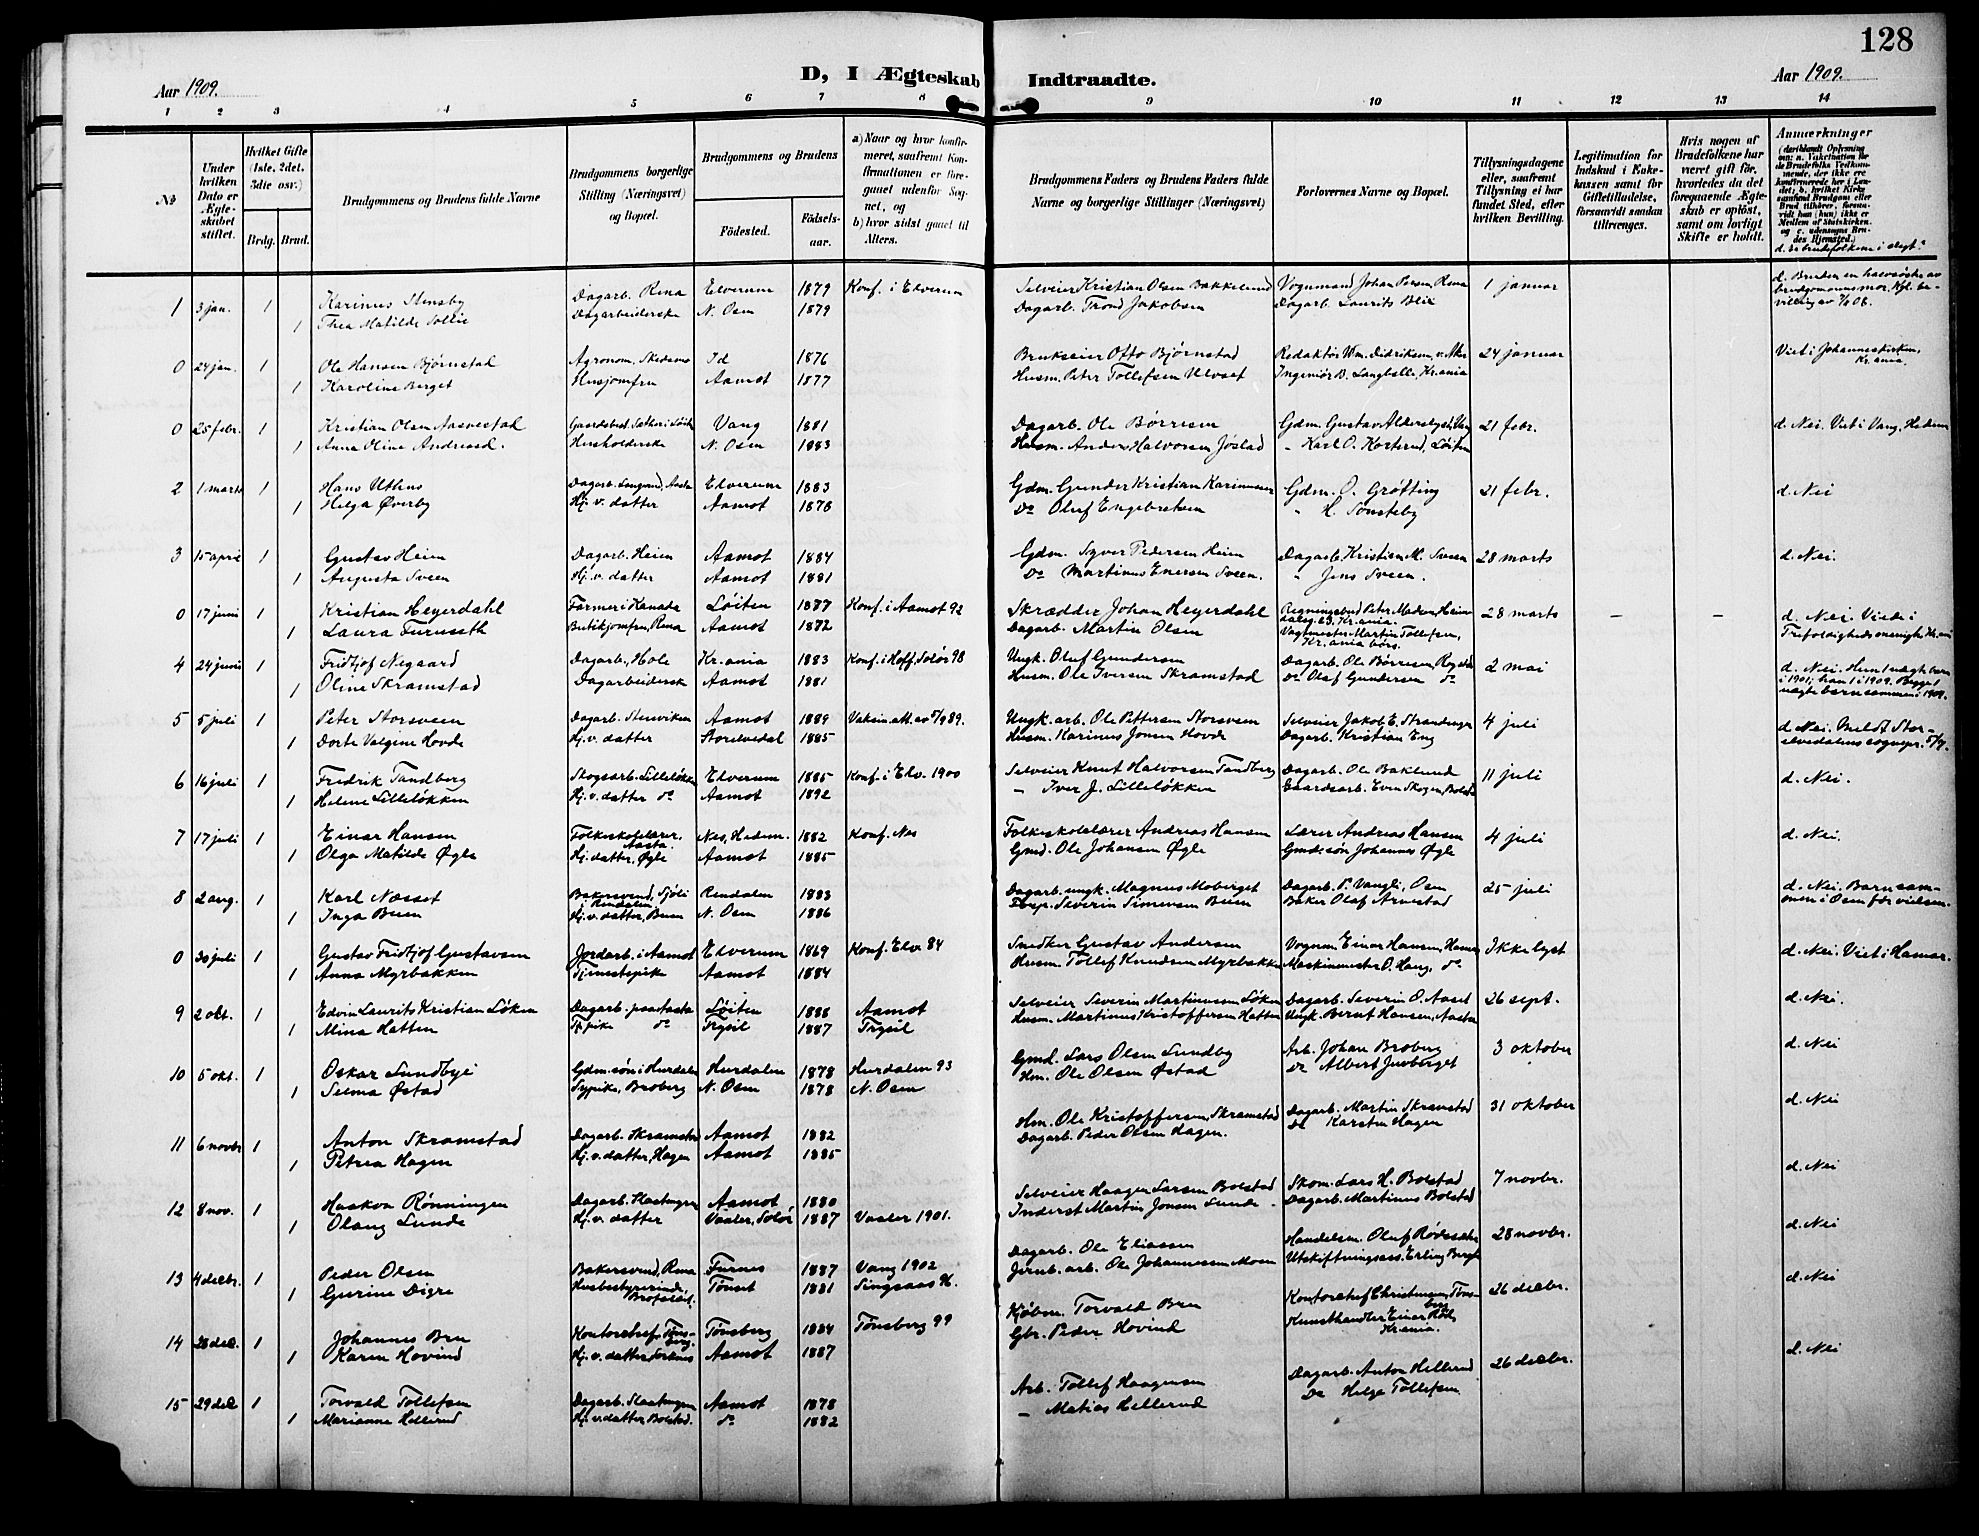 128
D, I Ægteskab Indtraadte.
Aar 1909.
Aar 1909.
1 2 3 4 5 6 7 8 9 10 11 12 13 14
No
Under hvilken Dato er Ægteskabet stiftet.
Hvilket Gifte (1ste, 2det, 3die osv.)
Brdg. Brud.
Brudgommens og Brudens fulde Navne
Brudgommens borgerlige Stilling (Næringsvei) og Bopæl.
Brudgommens og Brudens
Födested. Födsels-aar.
a) Naar og hvor konfirmeret, saafremt Konfirmationen er foregaaet udenfor Sognet, og
b) hvor sidst gaaet til Alters.
Brudgommens Faders og Brudens Faders fulde Navne og borgerlige Stillinger (Næringsvei)
Forlovernes Navne og Bopæl.
Tillysningsdagene eller, saafremt Tillysning ei har fundet Sted, efter hvilken Bevilling.
Legitimation for Indskud i Enkekassen samt for Giftetilladelse, forsaavidt saadan tiltrænges.
Hvis nogen af Brudefolkene har været gift för, hvorledes da det foregaaende Ægteskab er oplöst, samt om lovligt Skifte er holdt.
Anmærkninger
d. Er brudefolkene i slegt?
1 3 jan. 1 Karinus Stensby Dagarb. Rena Elverum 1879 Konf. i Elverum Selveier Kristian Olsen Bakkelund Vognmand Johan Persen, Rena 1 januar d. Bruden en halvsøster av
1 Thea Matilde Dagarbeiderske N. Osen 1879 Dagarb. Trond Jakobsen Dagarb. Laurits Blix brudgommens mor. Kgl. be-
villing av
0 24 jan. 1 Ole Hansen Bjørnstad Agronom, Skedsmo Id 1876 Brukseier Otto Bjørnstad Redaktør Wm. Didriksen, v. Aker 24 januar Viet i Johanneskirken,
Kr.ania
1 Karoline Berget Husjomfru Aamot 1877 Husm. Peter Tollefsen Ulvset Ingeniør B. Langballe, Kr.ania
0 25 febr. 1 Kristian Olsen Aasvestad Vang 1881 Dagarb. Ole Børresen Gdm. Gustav 21 febr. d. Nei. Viet i Vang, Hedem
1 Anna Oline Andreasd. Husholderske N. Osen 1883 Husm. Anders Halvorsen Jøstad " Karl O. Korterud, Løiten
2 1 marts 1 Hans Uthus Dagarb. Aasta Elverum 1883 Gdm. Gunder Kristian Karinusen Gdm. O. Grøtting 21 febr. d. Nei
1 Helga Øverby Hj. v. datter Aamot 1878 Do Oluf Engebretsen " H. Sønsteby
3 15 april 1 Gustav Heim Dagarb. Heim Aamot 1884 Gdm. Syver Pedersen Heim Dagarb. Kristian M. Sveen 28 marts d. Nei.
1 Augusta Sveen Hj. v. datter Aamot 1881 Do Martinus Enersen Sveen. " Jens Sveen.
0 17 juni 1 Kristian Heyerdahl Farmer i Kanada Løiten 1877 Konf. i Aamot 92 Skrædder Johan Heyerdahl Regningsbud Peter Madsen, Heim- 28 marts – – d. Nei. Viet i
dalsg. Kr.ania.
1 Laura Furuseth Butikjomfru, Rena Aamot 1872 Dagarb. Martin Olsen Vagtmester Martin Tollefsen, Trefoldighedsmenighed Kr.ania
Kr.ania børs.
4 24 juni 1 Fridtjof Negaard Dagarb., Hole Kr.ania 1883 Konf. i Hoff, Solør 98 Ungk. Oluf Gundersen Dagarb. Ole Børresen, 2 mai d. Nei. Hun 1 uegte barn
1 Oline Skramstad Dagarbeidersk Aamot 1881 Husm. Ole Iversen Skramstad Do Oluf Gundersen do i 1901; han 1 i 1909. Begge 1
uegte barn sammen i 1909.
5 5 juli 1 Peter Storsveen Dagarb. Stenviken Aamot 1889 Vaksin.att. av 5/9 89. Ungk. arb. Ole Pettersen Storsveen Selveier Jakob E. 4 juli d. Nei. Meldt Stor-
1 Dorte Valgine Hovde Hj. v. datter Storelvedal 1885 Husm. Karinus Jonsen Hovde Dagarb. Kristian Eng elvedalens sognepr. 5/7.
6 16 juli 1 Fredrik Tandberg Skogsarb. Lilleløkken Elverum 1885 Konf. i Elv. 1900 Selveier Knut Halvorsen Tandberg Dagarb. Ole Baklund 11 juli d. Nei.
1 Helene Lilleløkken Hj. v. datter do Aamot 1892 " Iver J. Lilleløkken Gaardsarb. Even Skogen, Bolstad
7 17 juli 1 Einar Hansen Folkeskolelærer, Aasta. Nes, Hedem. 1882 Konf. Nes Folkeskolelærer Andreas Hansen Lærer Andreas Hansen 4 juli d. Nei.
1 Olga Matilde Øgle Hj. datter, Øgle Aamot 1885 Gmd. Ole Johansen Øgle Gmd.søn Johannes Øgle
8 2 aug. 1 Karl Næsset Bakersvend, Sjöli i Rendalen Rendalen 1883 Dagarb. ungk. Magnus Moberget Dagarb. P. Vangli, Osen 25 juli d. Nei. Barn sam-
1 Inga Buen Hj. v. datter, Buen N. Osen 1886 Severin Simensen Buen Baker Olaf Arnestad men i Osen før vielsen.
0 30 juli 1 Gustav Fridtjof Gustavsen Jordarb. i Aamot Elverum 1869 Konf. Elv. 84 Snedker Gustav Andersen Vognm. Einar Hansen, Hamar Ikke lyst d. Nei. Viet i Hamar.
1 Anna Myrbakken Tjenestepike Aamot 1884 Husm. Tollef Knudsen Myrbakken Maskinmester O. Haug, do
9 2 okt. 1 Edvin Laurits Kristian Løken Dagarb. paa Aasta Løiten 1888 Aamot Selveier Severin Martinussen Løken Dagarb. Severin O. Aaset 26 sept. d. Nei.
1 Mina Hatten Tj.pike do Trysil 1887 Trysil Husm. Martinus Kristoffersen Hatten Ungk. Bernt Hansen, Aasta
10 5 okt. 1 Oskar Sundbye Gdm.søn i Hurdalen Hurdalen 1878 Hurdalen 93 Gmd. Lars Olsen Sundby Arb. Johan Broberg 3 oktober d. Nei
1 Selma Østad Sypike, Broberg N. Osen 1878 N. Osen Hm. Ole Olsen Østad Do Albert Juvberget
11 6 novbr 1 Anton Skramstad Dagarb. Skramstad Aamot 1882 Hm. Ole Kristoffersen, Skramstad Dagarb. Martin Skramstad 31 oktober d. Nei
1 Petrea Hagen Hj. v. datter, Hagen Aamot 1885 Dagarb. Peder Olsen Hagen. Do Karsten Hagen
12 8 nov. 1 Haakon Rønningen Dagarb. Aamot 1880 Selveier Haagen Larsen Bolstad Skom. Lars H. Bolstad 7 novbr. d. Nei
1 Olaug Lunde Hj. v. datter Vaaler, Solør 1887 Vaaler 1901. Inderst Martin Jonsen Lunde Dagarb. Martinus Bolstad
13 4 decbr. 1 Peder Olsen Bakersvend, Rena Furnes 1887 Vang 1902 Dagarb. Ole Eliassen Handelsm. Oluf Rødssæter 28 novbr. d. Nei
1 Gurine Digre Husbestyrerinde Tønset 1881 Singsaas K. Jernb. arb. Ole Johannessen Moen Utskiftningsass. Erling Bergh
14 28 dec. 1 Johannes Bru Kontorchef, Tønsberg Tønsberg 1884 Tønsberg 99 Kjøbm. Torvald Bru Kontorchef Christensen, Tønsberg 26 decbr. d. Nei
1 Karen Hovind Hj. v. datter Aamot 1887 Gbr. Peder Hovind Kunsthandler Einar Kr.ania.
15 29 dec 1 Torvald Tollefsen Dagarb. Aamot 1878 Arb. Tollef Haagensen Dagarb. Anton Hellerud 26 decbr. d. Nei
1 Marianne Hellerud Hj. v. datter Bolstad. do 1882 " Matias Hellerud Do Helge Tollefsen